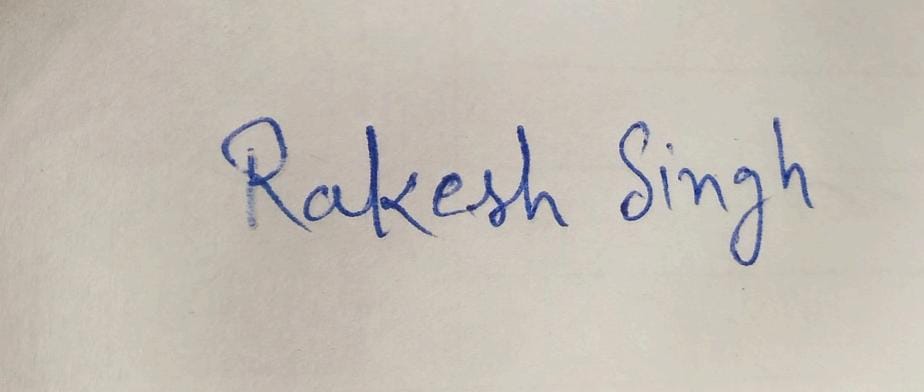 Rakesh Singh